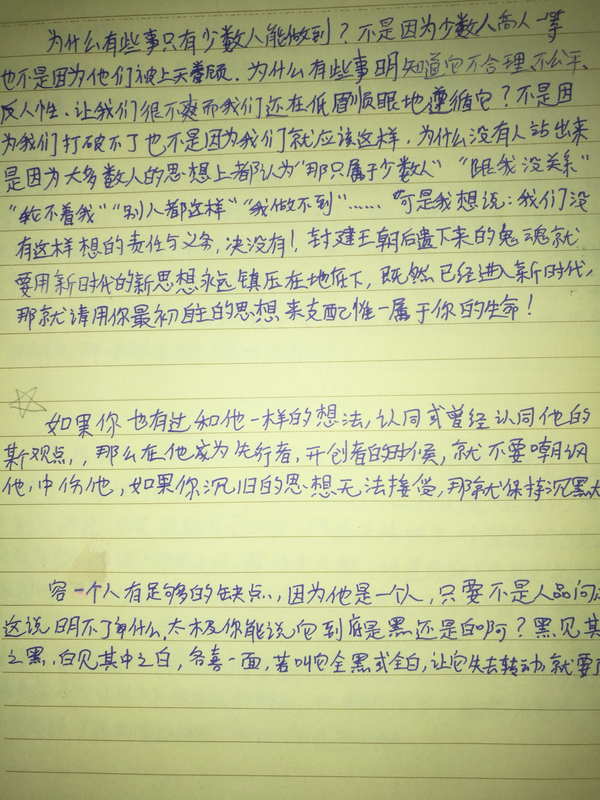 为什么有些事只有少数人能做到？不是因为少数人高人一等
也不是因为他们被上天眷顾. 为什么有些事明知道它不合理、不公平、
反人性. 让我们很不爽而我们还在低眉顺眼地遵循它？不是因
为我们打破不了也不是因为我们就应该这样. 为什么没有人站出来
是因为大多数人的思想上都认为“那只属于少数人” “跟我没关系”
“轮不着我” “别人都这样” “我做不到”…… 可是我想说：我们没
有这样想的责任与义务, 决没有！封建王朝后遗下来的鬼魂就
要用新时代的新思想永远镇压在地底下, 既然已经进入新时代,
那就请用你最初自主的思想来支配惟一属于你的生命！
如果你也有过和他一样的想法, 认同或曾经认同他的
某个观点, 那么在他成为先行者, 开创者的时候, 就不要嘲讽
他, 中伤他, 如果你沉旧的思想无法接受, 那就保持沉默
容一个人有足够的缺点, 因为他是一个人, 只要不是人品问
这说明不了什么, 太极你能说它到底是黑还是白啊？黑见其
之黑, 白见其中之白, 各喜一面, 若叫它全黑或全白, 让它失去转动就要